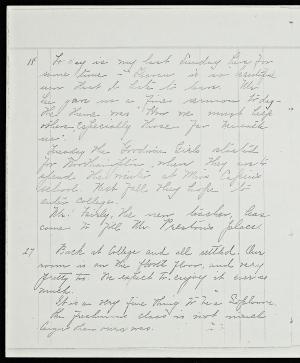 18 To-day is my last Sunday here for
some time - is so beautiful
now that I hate to leave. Mr.
Lee gave us a fine sermon to-day -
the theme was "How we must help
others especially those far beneath
us."
Tuesday the Goodwin Girls started
for Northampton, where they are to
spend the winter at Miss Capen's
school. Next fall they hope to
enter college.
Mr. Fairly, the new teacher, has
come to fill Mr. Preston's place.
27 Back at College and all settled. Our
rooms is on the fourth floor, and very
pretty too. We expect to enjoy it ever so
much.
It is a very fine thing to be a Sophomore.
The freshman class is not much
larger than ours was.